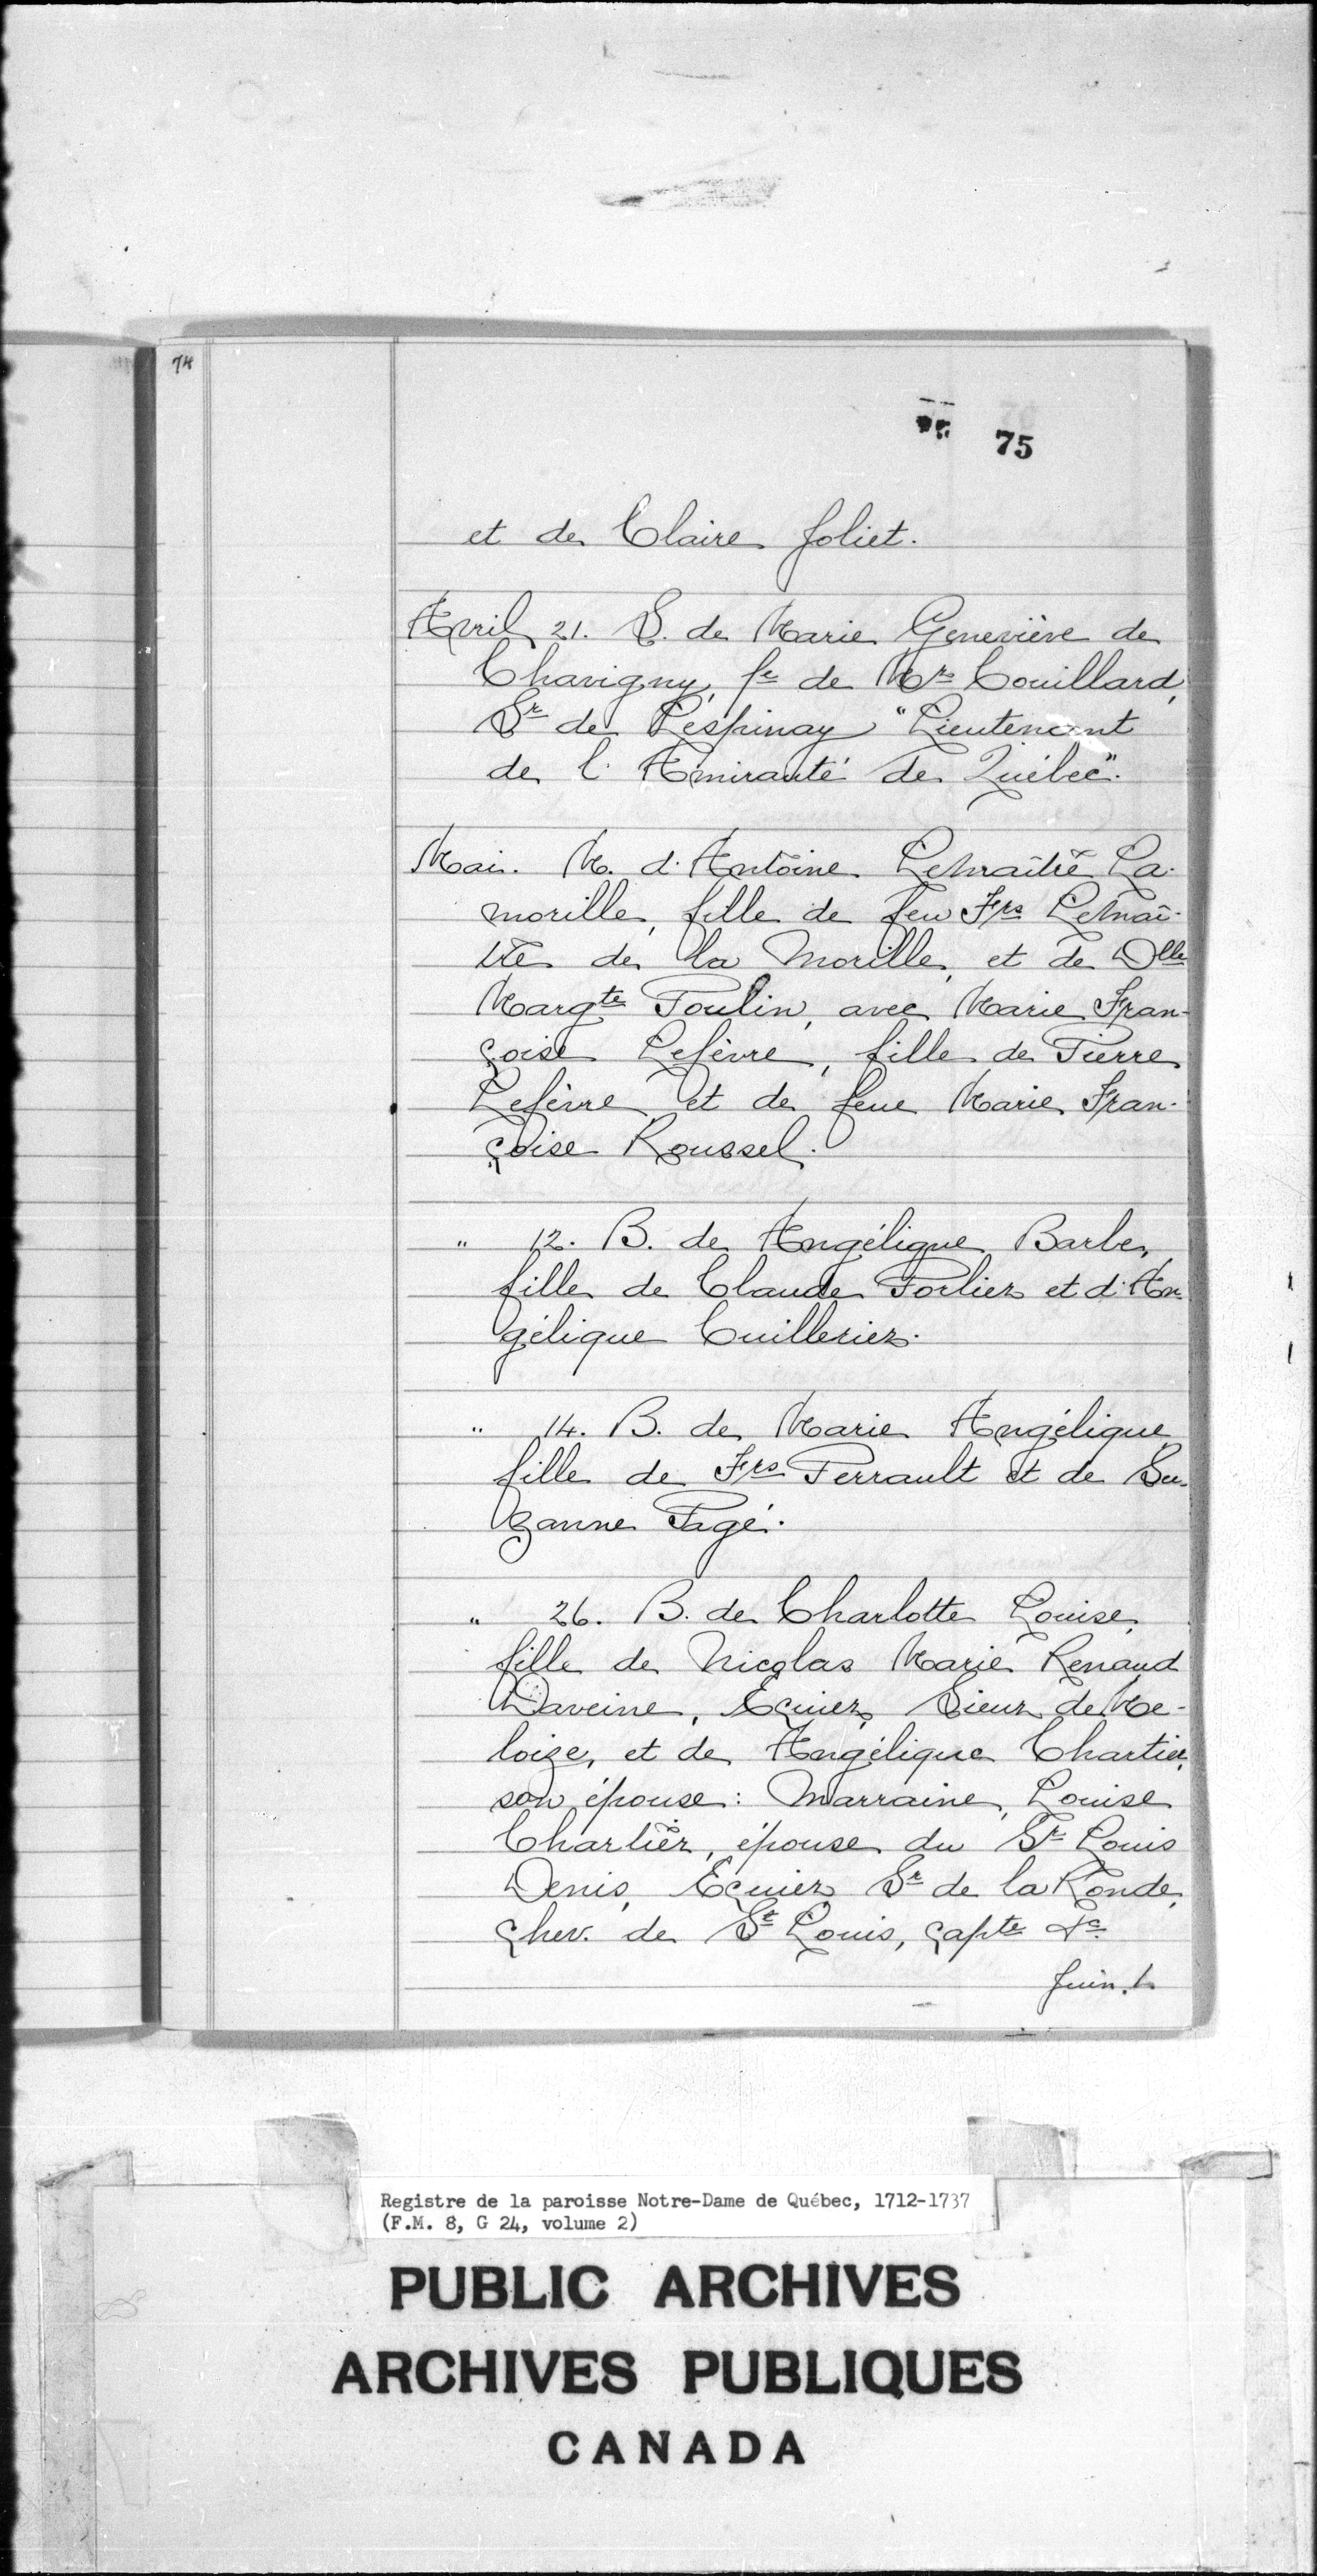 74
75
et de Claire Joliet.
Avril 21. S. de Marie Geneviève de
Chavigny, fe de Mr Couillard,
Sr de Lespinay "Lieutenant
de l'Amirauté de Québec".
Mai. M. d'Antoine Lemaître La-
morille, fille de feu Frs Lemaî-
tre de la Morille, et de Dlle
Margte Poulin, avec Marie Fran-
çoise Lefèvre, fille de Pierre
Lefèvre et de feue Marie Fran-
çoise Roussel.
" 12. B. de Angélique Barbe,
fille de Claude Porlier et d'An-
gélique Cuillerier.
" 14. B. de Marie Angélique
fille de Frs Perrault et de Su-
zanne Pagé.
" 26. B. de Charlotte Louise,
fille de Nicolas Marie Renaud
Daveine, Ecuier, Sieur de Me-
loize, et de Angélique Chartier,
son épouse: Marraine, Louise
Chartier, épouse du Sr Louis
Denis, Ecuier Sr de la Ronde,
chev. de St Louis, capte &c.
Juin 1.
Registre de la paroisse Notre-Dame de Québec, 1712-1737
(F.M. 8, G 24, volume 2)
PUBLIC ARCHIVES
ARCHIVES PUBLIQUES
CANADA